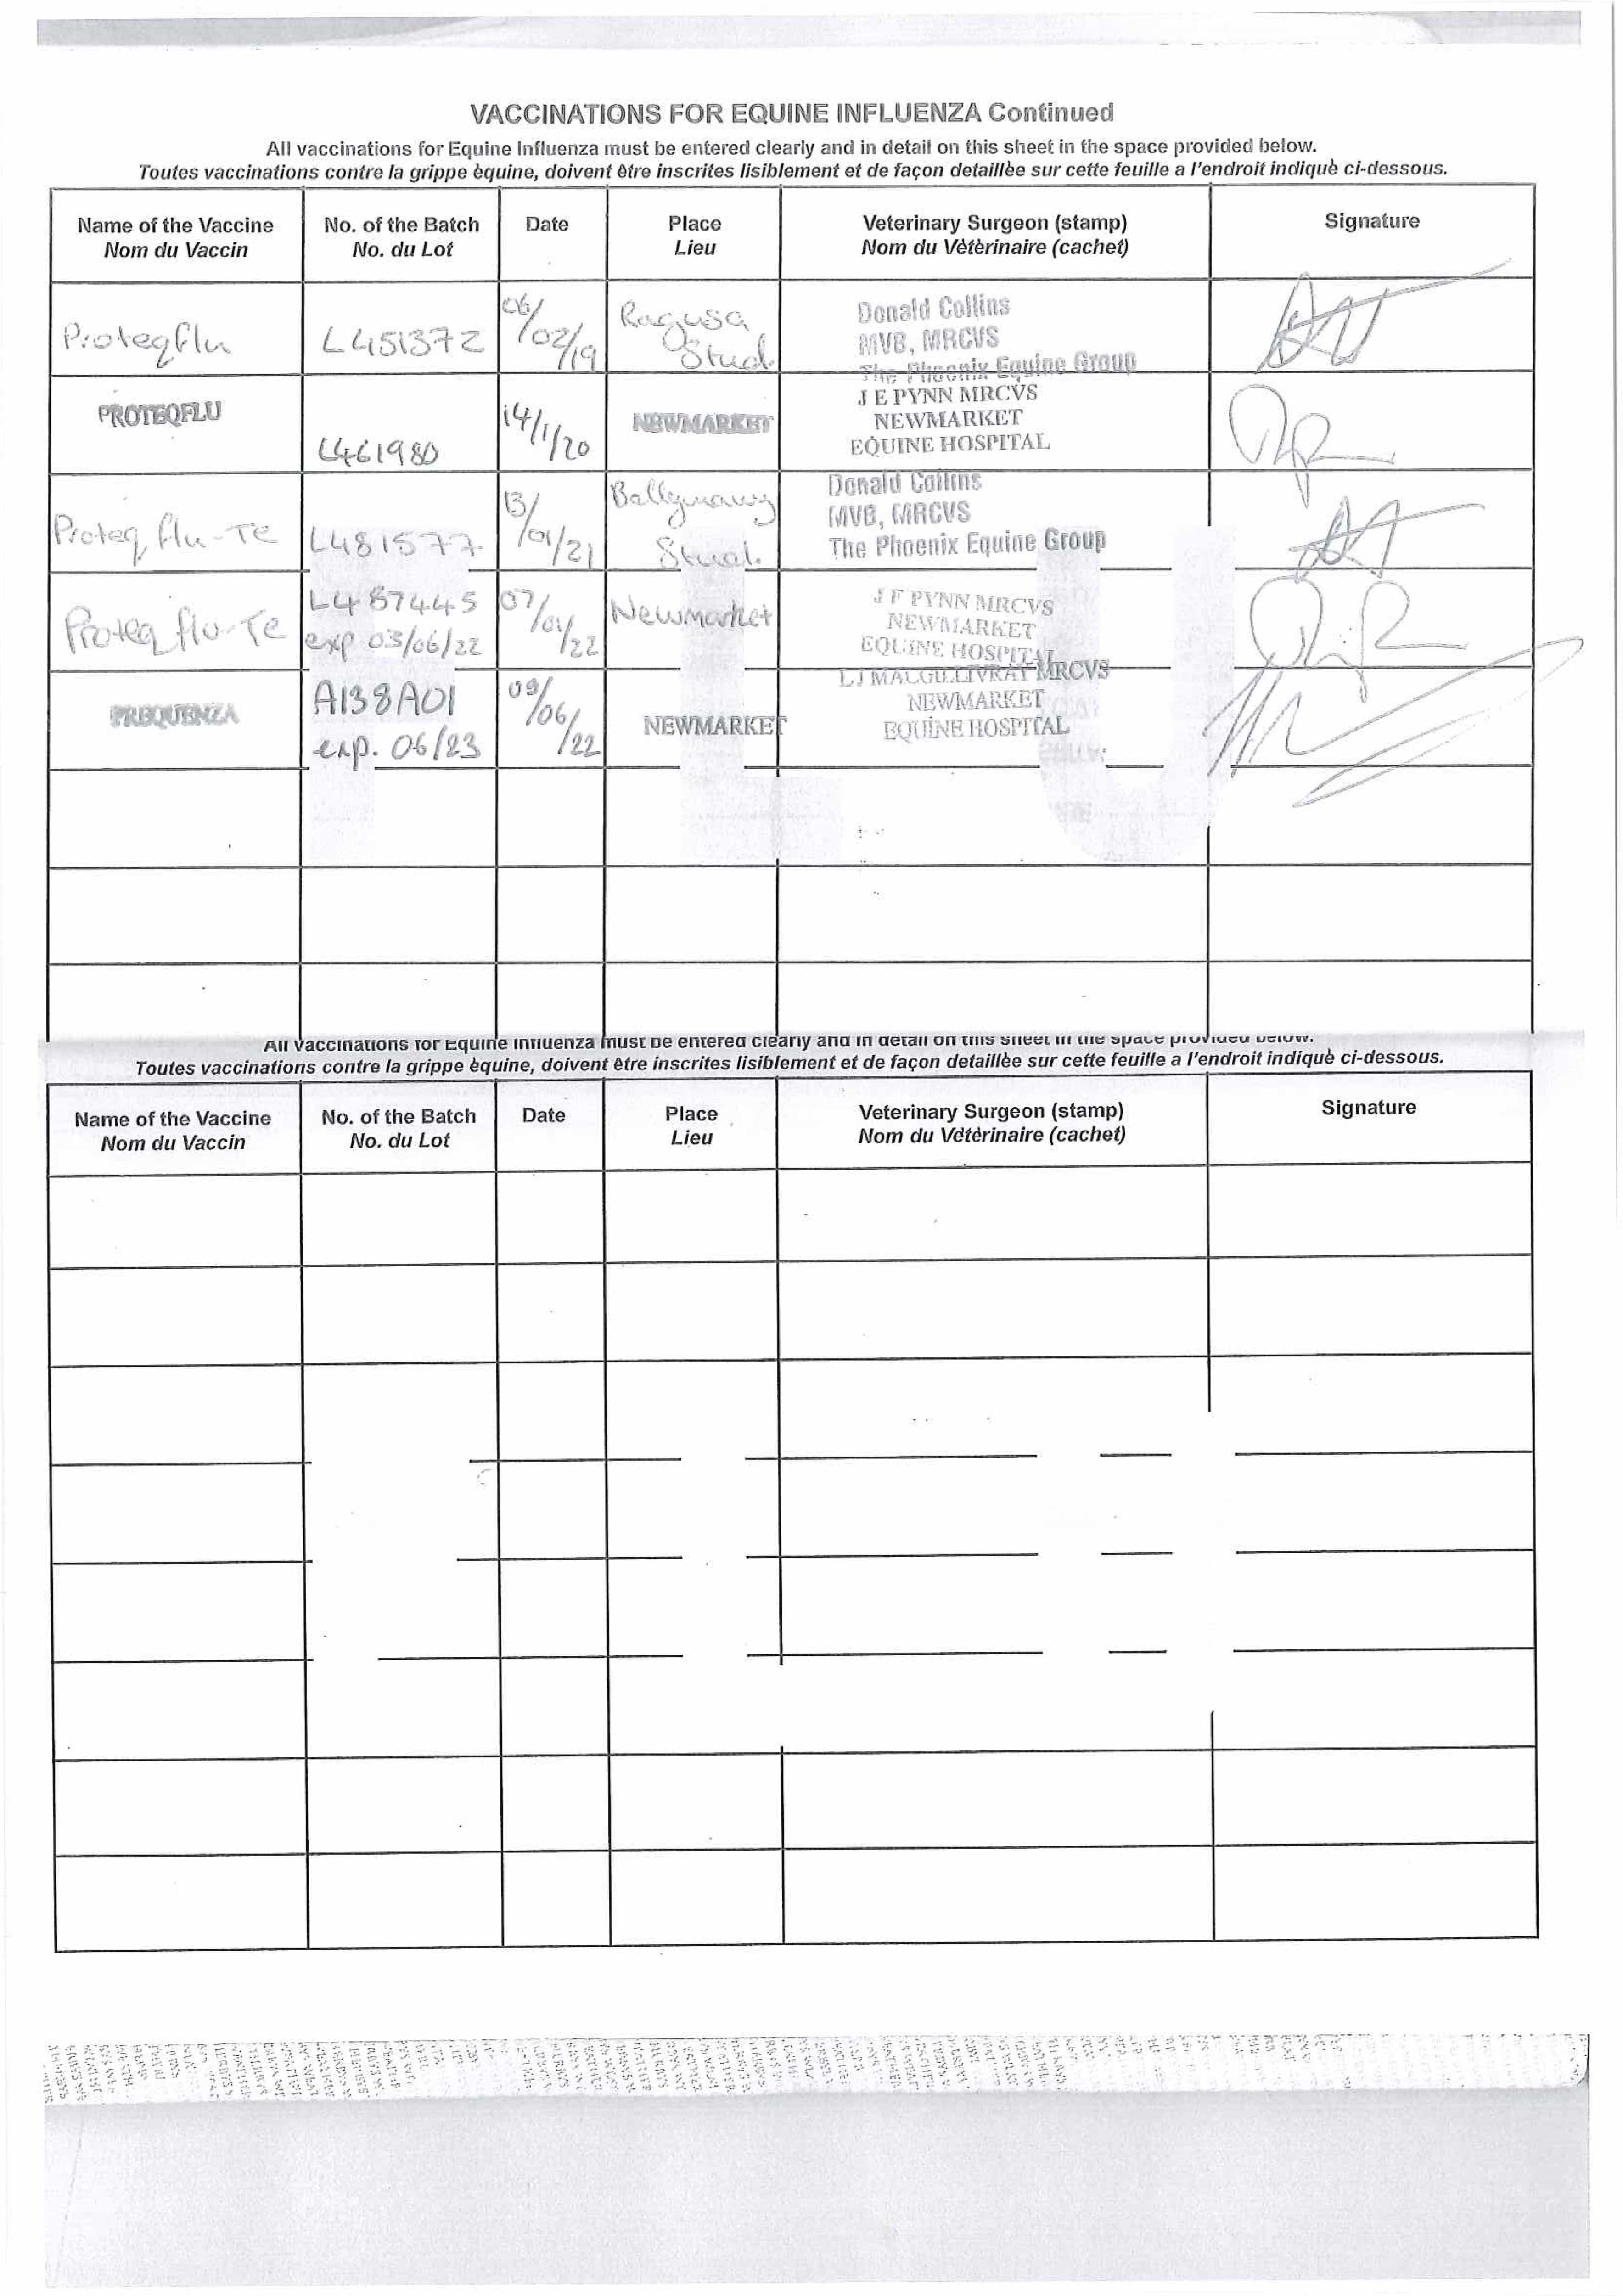 VACCINATIONS FOR EQUINE INFLUENZA Continued
All vaccinations for Equine Influenza must be entered clearly and in detail on this sheet in the space provided below.
Toutes vaccinations contre la grippe èquine, doivent être inscrites lisiblement et de façon detaillèe sur cette feuille a l'endroit indiquè ci-dessous.
Name of the Vaccine No. of the Batch Date Place Veterinary Surgeon (stamp) Signature
Nom du Vaccin No. du Lot Lieu Nom du Vètèrinaire (cachet)
Proteqflu L451372 06/02/19 Ragusa Stud
Donald Collins
MVB, MRCVS
The Phoenix Equine Group
PROTEQFLU L461980 14/1/20 NEWMARKET
J E PYNN MRCVS
NEWMARKET
EQUINE HOSPITAL
Proteq flu-Te L481577 13/01/21 Stud.
Donald Collins
MVB, MRCVS
The Phoenix Equine Group
Proteq flu-Te L487445 07/01/22 Newmarket
exp 03/06/22
J F PYNN MRCVS
NEWMARKET
EQUINE HOSPITAL
PREQUENZA A138A01 09/06/22 NEWMARKET
exp. 06/23
LJ MRCVS
NEWMARKET
EQUINE HOSPITAL
All vaccinations for Equine Influenza must be entered clearly and in detail on this sheet in the space provided below.
Toutes vaccinations contre la grippe èquine, doivent être inscrites lisiblement et de façon detaillèe sur cette feuille a l'endroit indiquè ci-dessous.
Name of the Vaccine No. of the Batch Date Place Veterinary Surgeon (stamp) Signature
Nom du Vaccin No. du Lot Lieu Nom du Vétèrinaire (cachet)